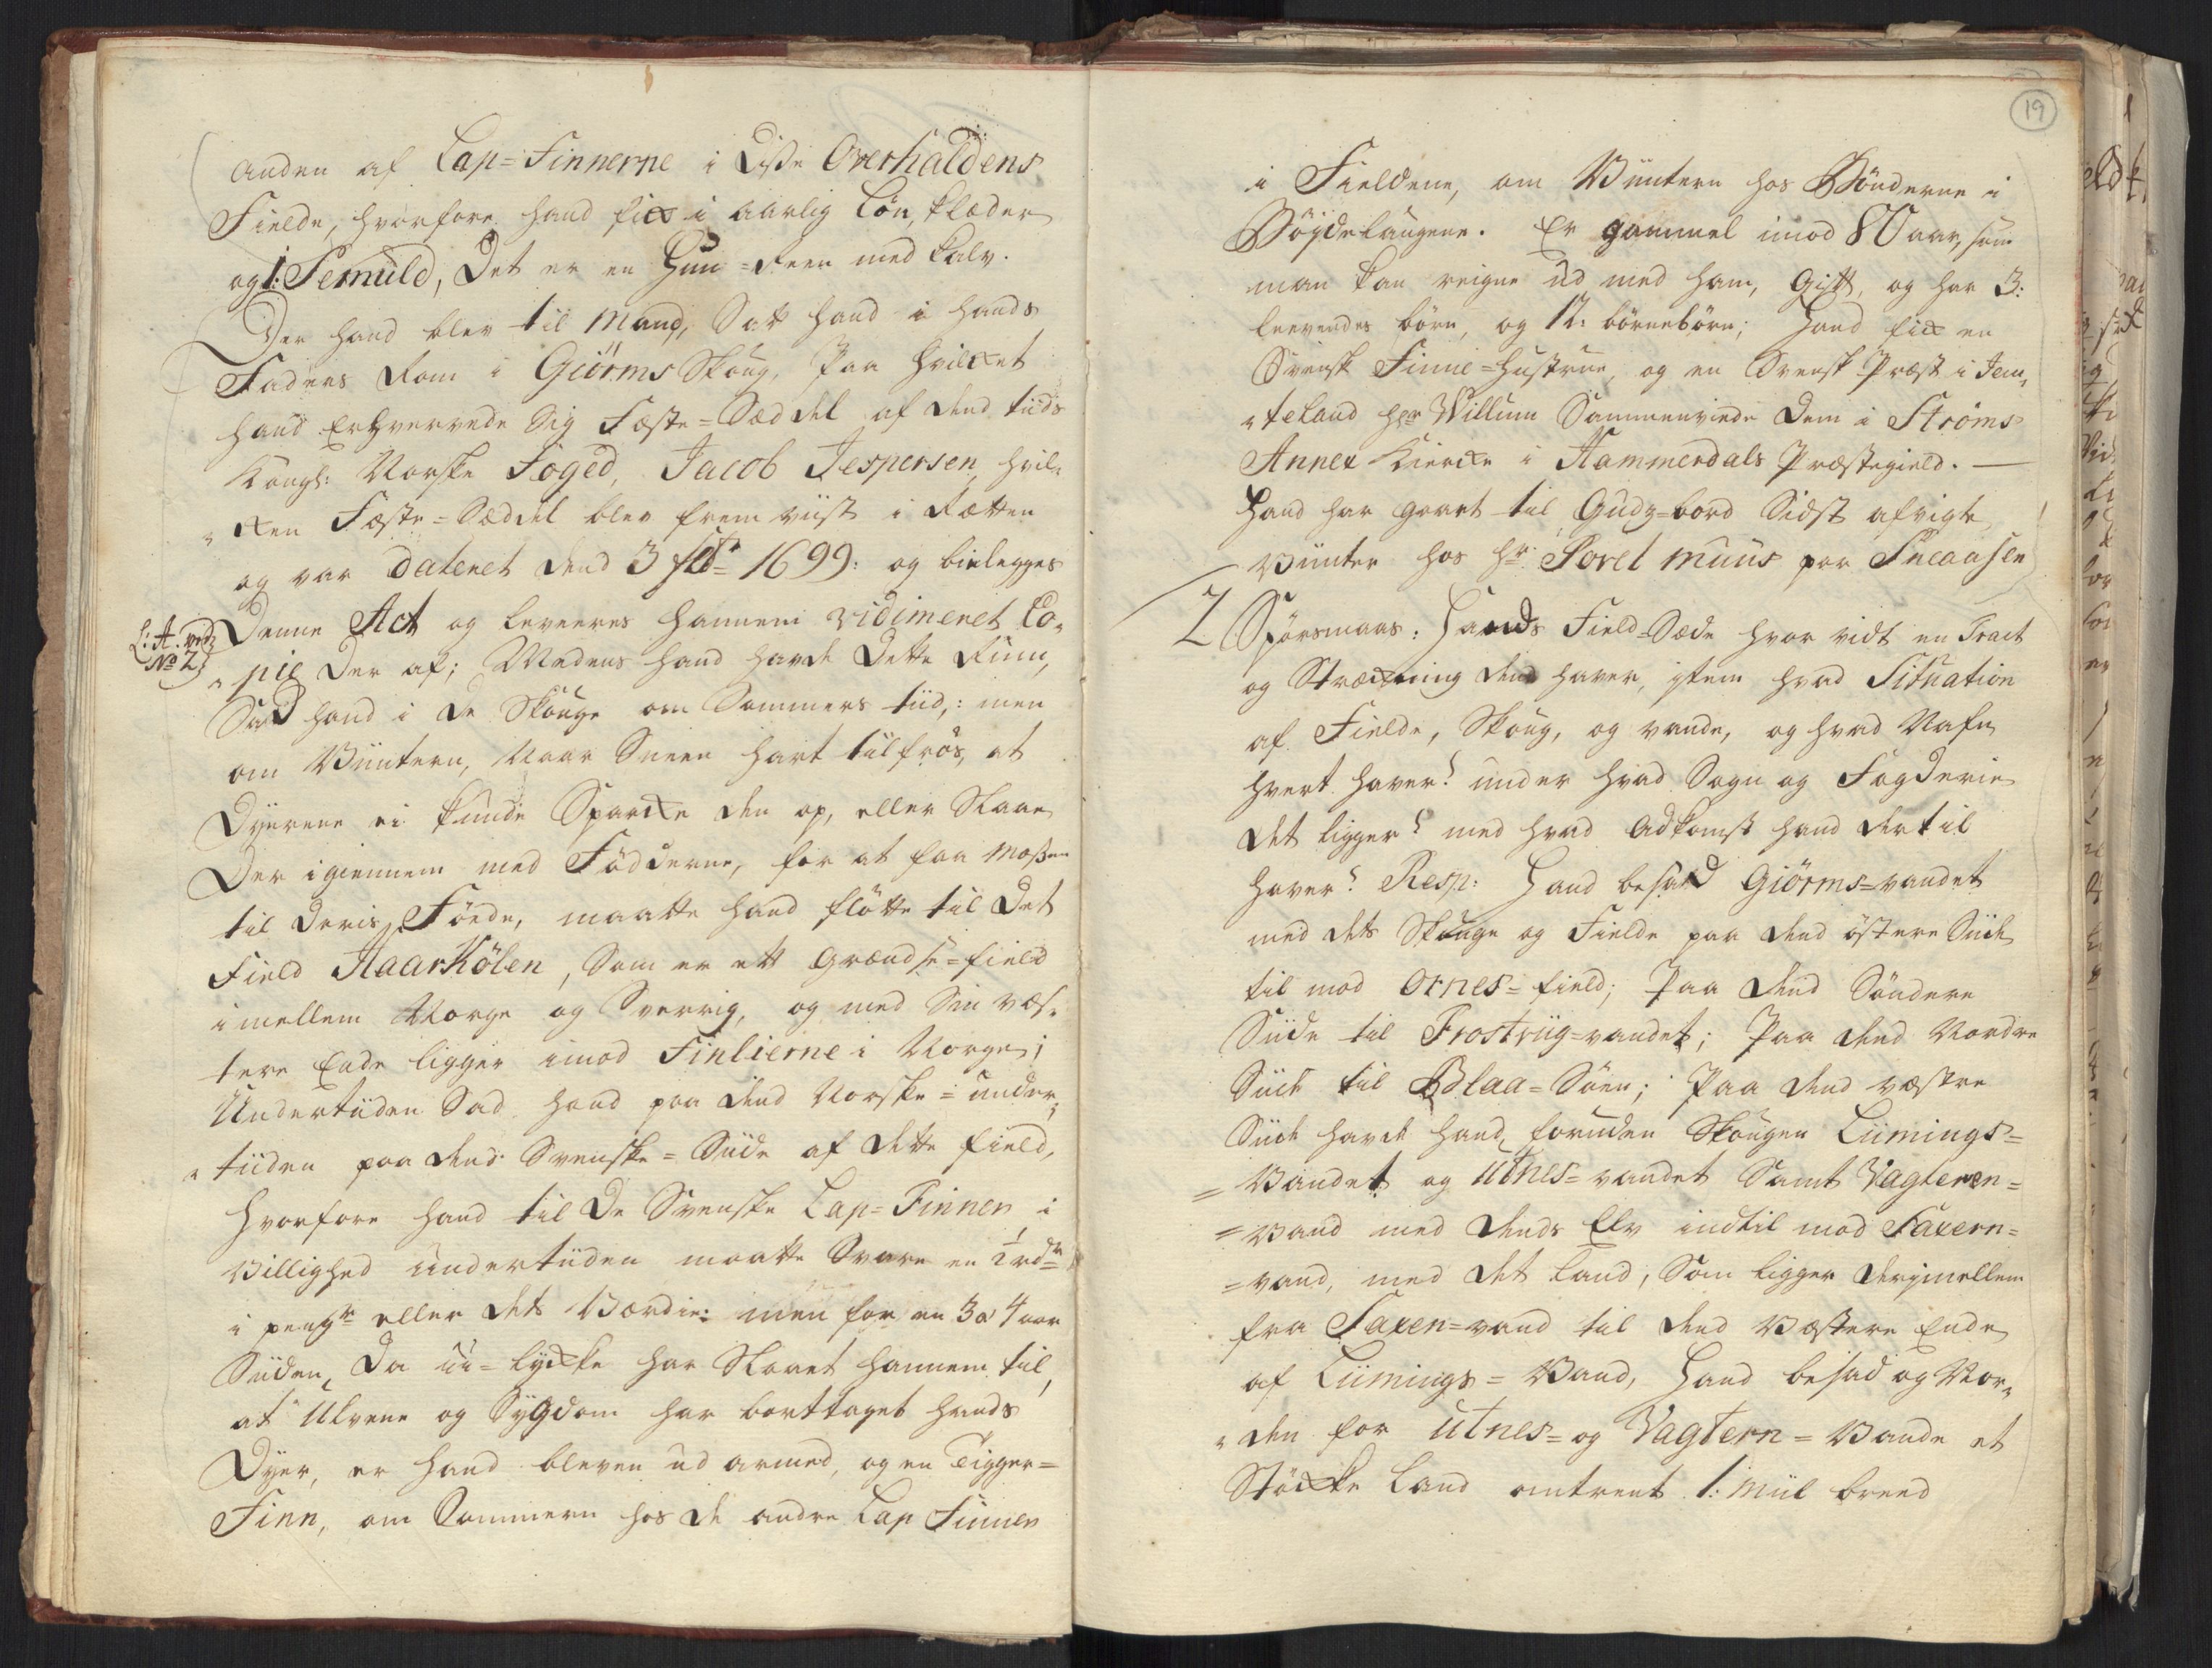 anden af Lap=Finnerne i disse Overhaldens
Fielde, hvorfore hand fick i aarlig Løn, klæder
og 1: Semuld, det er en Hun=Reen med kalv.
Der hand blev til Mand, Satt hand i hands
Faders Rom i Giörms Skoug, paa hvilcket
hand Erhvervede Sig Fæste=Sæddel af dend tiids
Kongl: Norske Foged, Jacob Jespersen, hvil„
„cken Fæste=Sæddel blev frem viist i Rætten
og var dateret dend 3 1699: og bielegges
L: A: ved
No 2
Denne Act og leveeres hannem vidimeret Co„
„pie der af; Medens hand havde dette Rum,
Sad hand i de Skouge om Sommers tiid,: men
om Viintern, naar Sneen hart tilfrös, at
Dyerene ei kunde Sparcke den op, eller Slaae
der igiennem med Födderne, for at faa Mossen
til deris Föede, maatte hand flötte til det
field Haarkölen, Som er ett Grændse=field
imellem Norge og Sverrig, og med Sin væs„
tere Ende ligger imod Finlierne i Norge;
Undertiiden Sad hand paa dend Norske= under„
„tiiden paa dend Svenske=Siide af dette field,
hvorfore hand til de Svenske Lap=Finner i
Villighed undertiiden maatte Svare en ½ rdr
i penge eller dets Værdie: men for en 3 a 4 aar
Siiden, da u=lycke har Slaaet hannem til,
at Ulvene og Sygdom har borttaget hands
Dyer, er hand bleven ud armed, og en Tigger=
Finn, om Sommern hos de andre Lap Finner
19
i Fieldene, om Viintern hos Bönderne i
Böydelaugene. Er gammel imod 80 aar, som
man kan reigne ud med ham, Gift, og har 3:
levendes börn, og 12: börnebörn; hand fick en
Svensk Finne=Hustrue, og en Svensk Præst i Jem„
„teland hr Willum Sammenviede dem i Ströms
Annex Kiercke i Hammerdals Præstegield. —
Hand har gaaet til Gudz=bord Sidst afvigte
Viinter hos hr: Povel Muus paa Sneaasen
2 Spörsmaal: Hands Field=Sæde hvor vidt en Tract
og Stræckning dend haver, item hvad Situation
af Fielde, Skoug, og vande, og hvad Nafn
hvert haver? under hvad Sogn og Fogderie
det ligger? med hvad Adkomst hand dertil
haver? Resp: Hand besad Giörms=vandet
med dets Skouge og Fielde paa dend östere Siide
til mod Ornes=field; Paa dend Söndere
Siide til Frostviig=vandet; Paa dend Nordre
Siide til Blaa=Söen; Paa dend væstre
Siide havde hand, foruden Skougen Liimings=
=Vandet og Utnes=vandet Samt Vagteren=
=vand med dends Elv indtil mod Saxern=
=vand, med det Land, Som ligger derimellem
fra Saxen=vand til dend Væstere Ende
af Liimings=Vand, Hand besad og Nor„
„den for Utnes= og Vagtern=Vande et
Stöcke Land omtrent 1: Miil breed